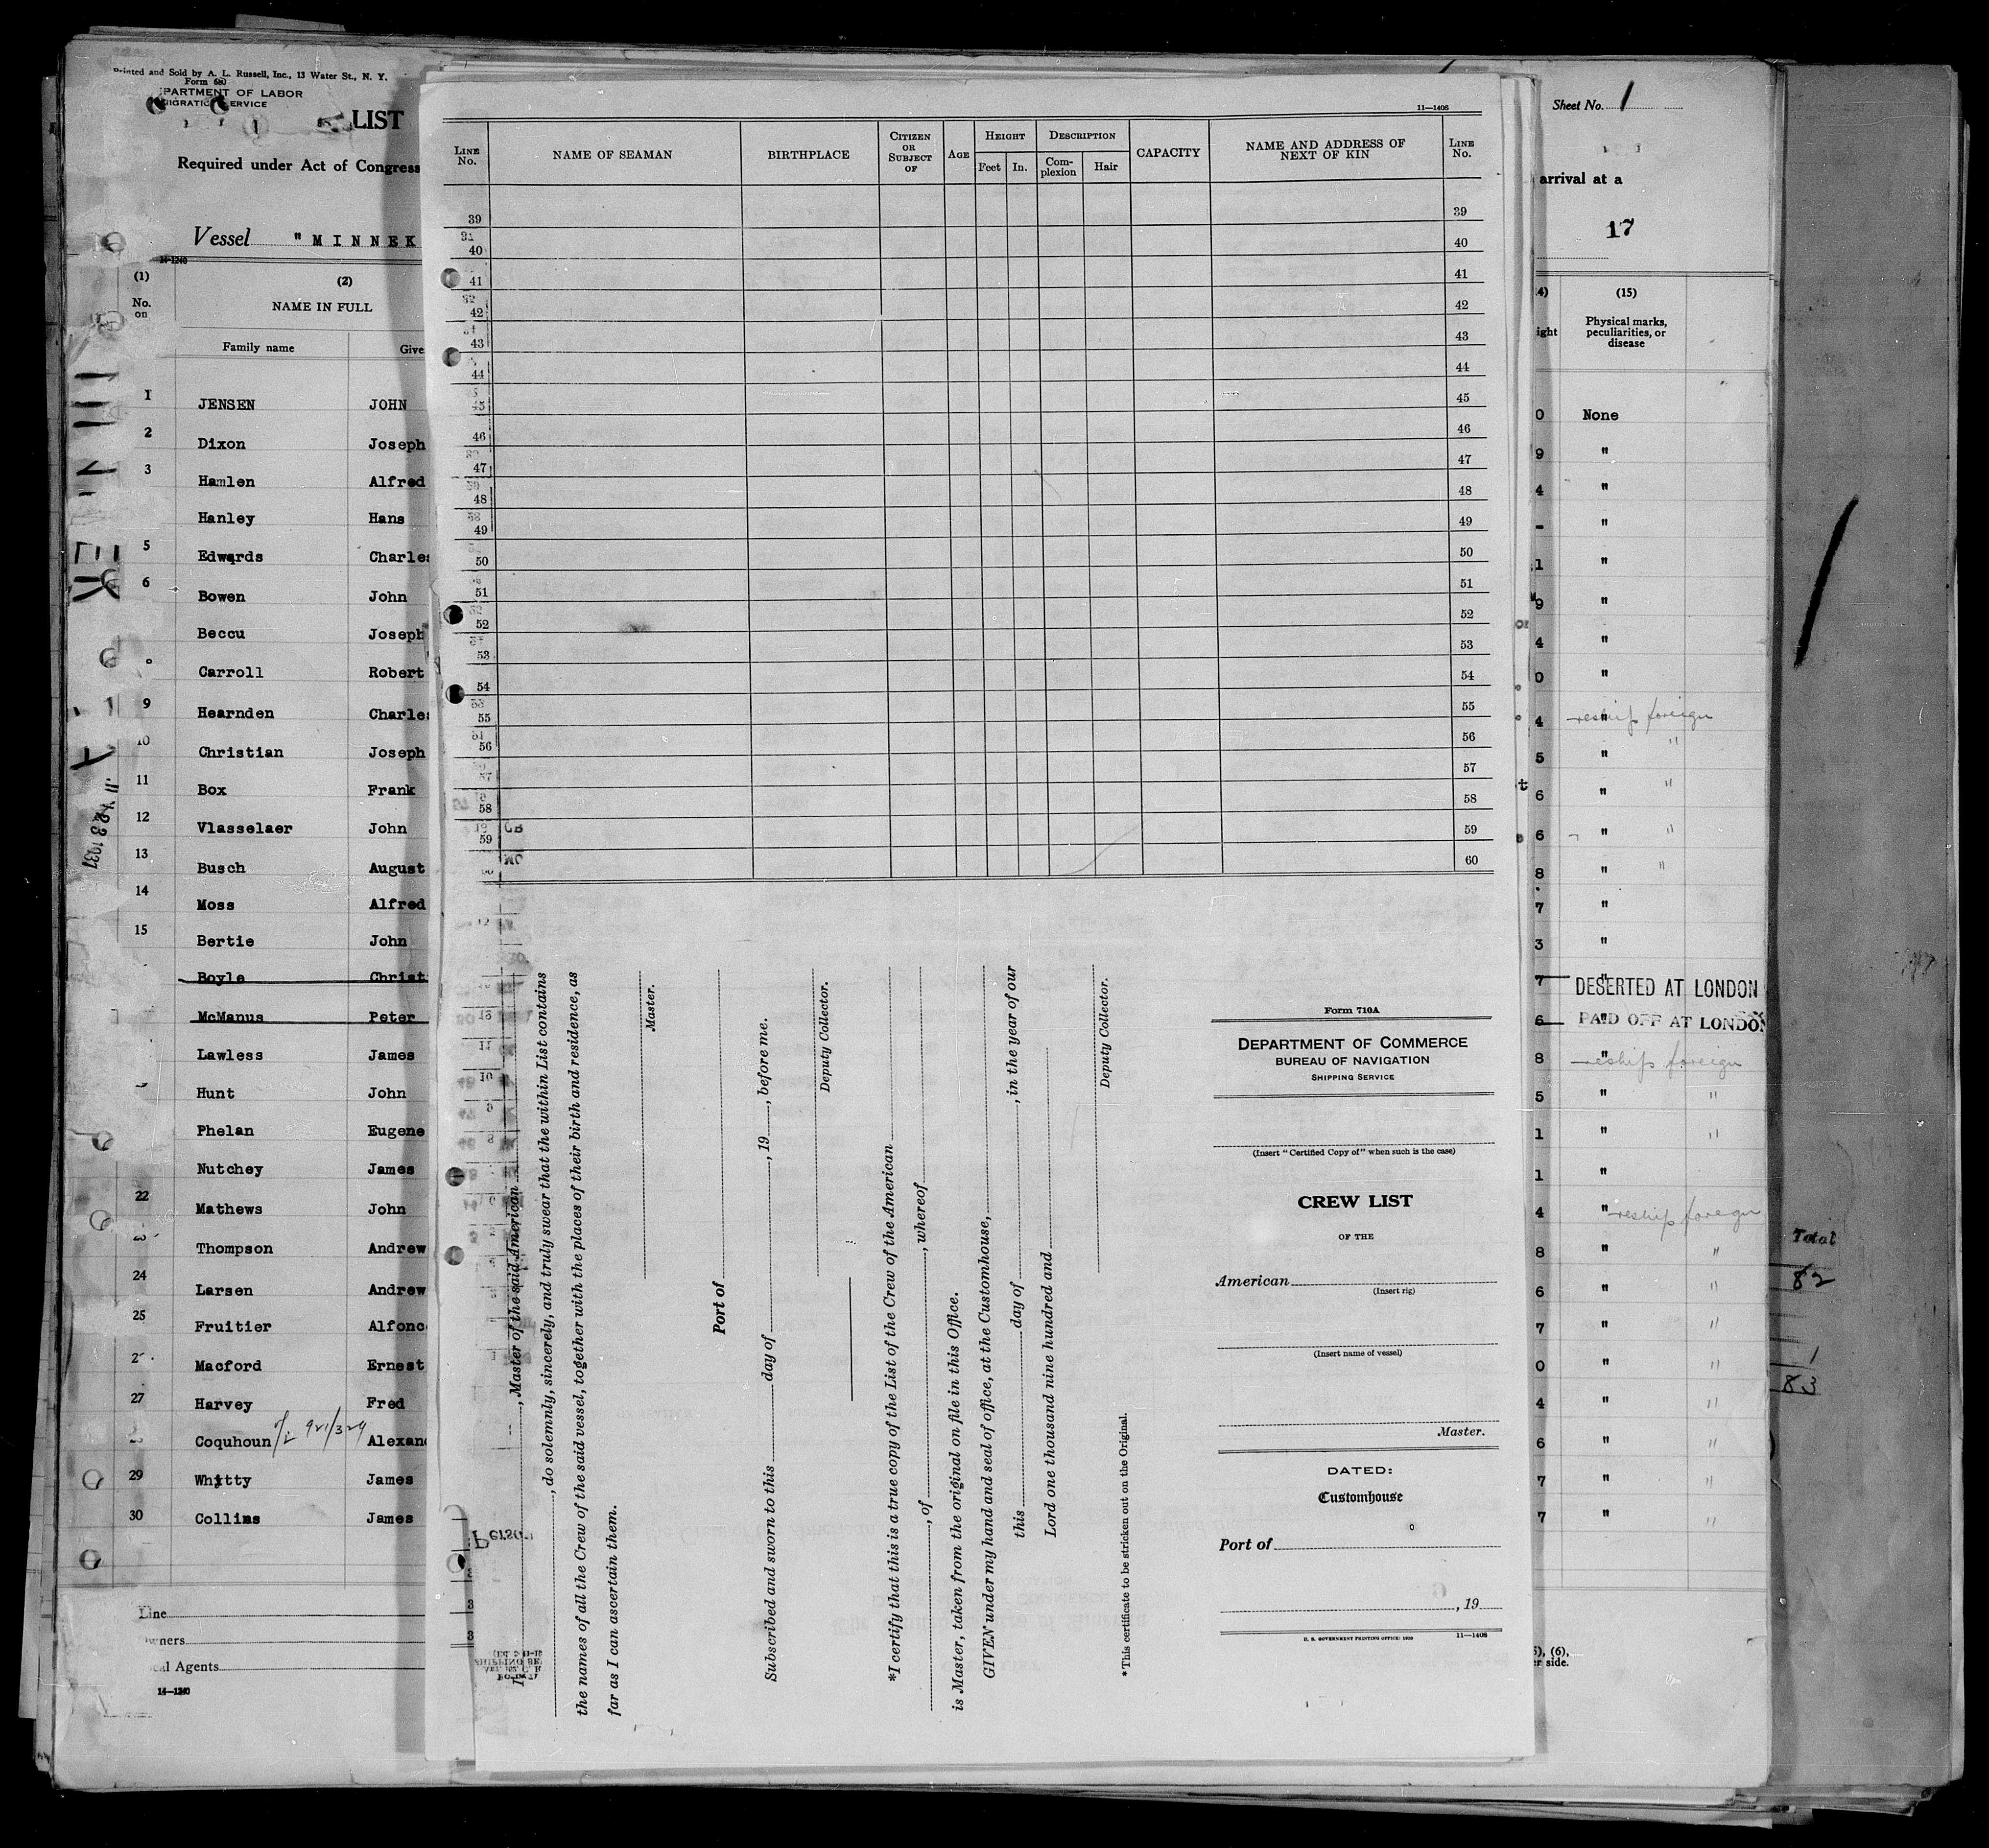 Printed and Sold by A. L. Russell, Inc., 13 Water St., N. Y.
Form 680
DEPARTMENT OF LABOR
LIST
Required under Act of Congress
Vessel "MINNEK
14-1240
(1)
No.
on
(2)
NAME IN FULL
Family name
Give
1 JENSEN JOHN
2 Dixon Joseph
3 Hamlen Alfred
Hanley Hans
5 Edwards Charles
6 Bowen John
Beccu Joseph
Carroll Robert
9 Hearnden Charles
10 Christian Joseph
11 Box Frank
12 Vlasselaer John
13 Busch August
14 Moss Alfred
15 Bertie John
Boyle Christ
McManus Peter
Lawless James
Hunt John
Phelan Eugene
Nutchey James
22 Mathews John
Thompson Andrew
24 Larsen Andrew
25 Fruitier Alfonc
Macford Ernest
27 Harvey Fred
Coquhoun 921/324 Alexan
29 Whitty James
30 Collins James
Line
Owners
Local Agents
14-1240
11-1408
LINE No.
NAME OF SEAMAN
BIRTHPLACE
CITIZEN OR SUBJECT OF
AGE
HEIGHT
Feet
In.
DESCRIPTION
Complexion
Hair
CAPACITY
NAME AND ADDRESS OF NEXT OF KIN
LINE No.
39 39
40 40
41 41
42 42
43 43
44 44
45 45
46 46
47 47
48 48
49 49
50 50
51 51
52 52
53 53
54 54
55 55
56 56
57 57
58 58
59 59
60 60
I, , Master of the said American
, do solemnly, sincerely, and truly swear that the within List contains
the names of all the Crew of the said vessel, together with the places of their birth and residence, as
far as I can ascertain them.
Master.
Port of
Subscribed and sworn to this day of , 19 , before me.
Deputy Collector.
*I certify that this is a true copy of the List of the Crew of the American
, of , whereof
is Master, taken from the original on file in this Office.
GIVEN under my hand and seal of office, at the Customhouse,
this day of , in the year of our
Lord one thousand nine hundred and
Deputy Collector.
*This certificate to be stricken out on the Original.
Form 710A
DEPARTMENT OF COMMERCE
BUREAU OF NAVIGATION
SHIPPING SERVICE
(Insert "Certified Copy of" when such is the case)
CREW LIST
OF THE
American
(Insert rig)
(Insert name of vessel)
Master.
DATED:
Customhouse
Port of
, 19
U. S. GOVERNMENT PRINTING OFFICE: 1930
11-1408
Sheet No. 1
arrival at a
17
(15)
Physical marks, peculiarities, or disease
0 None
9 "
4 "
- "
1 "
9 "
4 "
0 "
4 " reship foreign
5 " "
6 " "
6 " "
8 " "
7 "
3 "
7 " DESERTED AT LONDON
6 " PAID OFF AT LONDON
8 " reship foreign
5 " "
1 " "
1 "
4 " reship foreign
8 " "
6 " "
7 " "
0 " "
4 " "
6 " "
7 " "
7 " "
(6),
side.
Total
82
1
83